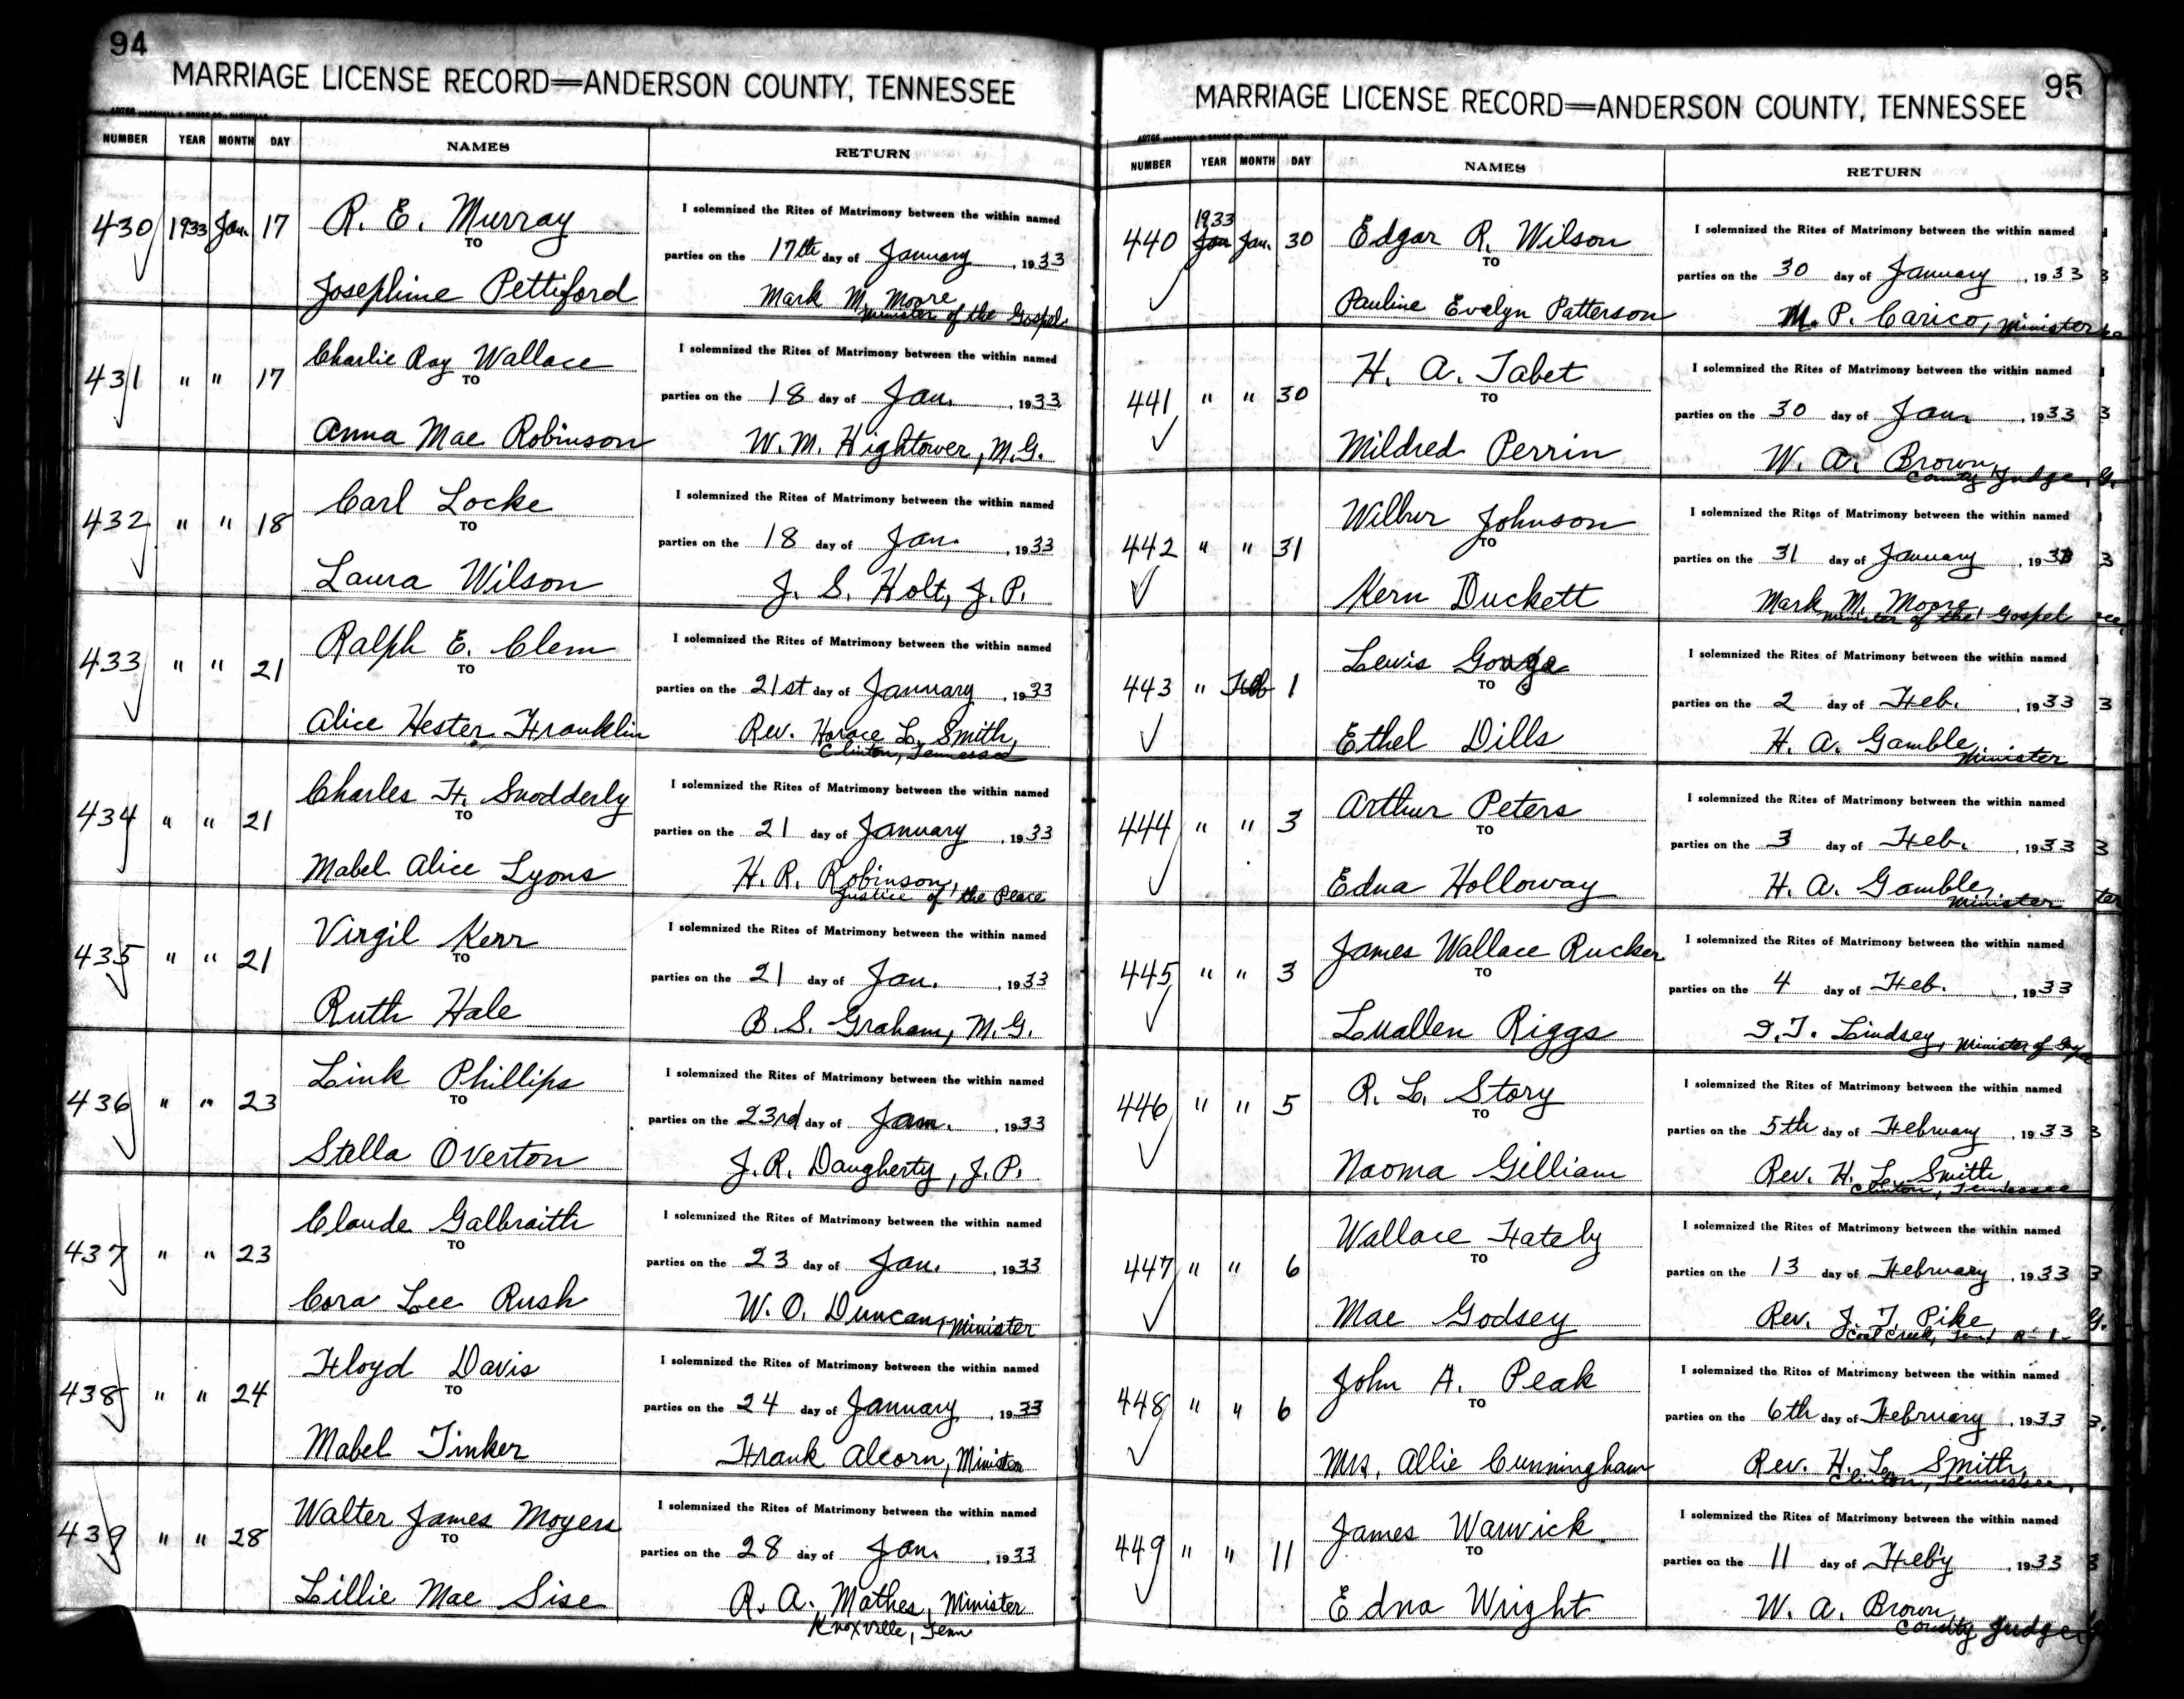 94
MARRIAGE LICENSE RECORD—ANDERSON COUNTY, TENNESSEE
NUMBER YEAR MONTH DAY NAMES RETURN
430 1933 Jan. 17 R. E. Murray
TO
Josephine Pettiford
I solemnized the Rites of Matrimony between the within named
parties on the 17th day of January, 1933
Mark M. Moore
Minister of the Gospel
431 " " 17 Charlie Ray Wallace
TO
Anna Mae Robinson
I solemnized the Rites of Matrimony between the within named
parties on the 18 day of Jan., 1933
W. M. Hightower, M.G.
432 " " 18 Carl Locke
TO
Laura Wilson
I solemnized the Rites of Matrimony between the within named
parties on the 18 day of Jan., 1933
J. S. Holt, J. P.
433 " " 21 Ralph E. Clem
TO
Alice Hester Franklin
I solemnized the Rites of Matrimony between the within named
parties on the 21st day of January, 1933
Rev. Horace L. Smith,
Clinton, Tennessee
434 " " 21 Charles H. Snodderly
TO
Mabel Alice Lyons
I solemnized the Rites of Matrimony between the within named
parties on the 21 day of January, 1933
H. R. Robinson,
Justice of the Peace
435 " " 21 Virgil Kerr
TO
Ruth Hale
I solemnized the Rites of Matrimony between the within named
parties on the 21 day of Jan., 1933
B. S. Graham, M.G.
436 " " 23 Link Phillips
TO
Stella Overton
I solemnized the Rites of Matrimony between the within named
parties on the 23rd day of Jan., 1933
J. R. Daugherty, J.P.
437 " " 23 Claude Galbraith
TO
Cora Lee Rush
I solemnized the Rites of Matrimony between the within named
parties on the 23 day of Jan., 1933
W. O. Duncan, Minister
438 " " 24 Floyd Davis
TO
Mabel Tinker
I solemnized the Rites of Matrimony between the within named
parties on the 24 day of January, 1933
Frank Alcorn, Minister
439 " " 28 Walter James Moyers
TO
Lillie Mae Sise
I solemnized the Rites of Matrimony between the within named
parties on the 28 day of Jan., 1933
R. A. Mathes, Minister
Knoxville, Tenn
95
MARRIAGE LICENSE RECORD—ANDERSON COUNTY, TENNESSEE
NUMBER YEAR MONTH DAY NAMES RETURN
440 1933 Jan. 30 Edgar R. Wilson
TO
Pauline Evelyn Patterson
I solemnized the Rites of Matrimony between the within named
parties on the 30 day of January, 1933
M. P. Carico, Minister
441 " " 30 H. A. Tabet
TO
Mildred Perrin
I solemnized the Rites of Matrimony between the within named
parties on the 30 day of Jan., 1933
W. A. Brown,
County Judge
442 " " 31 Wilbur Johnson
TO
Kern Duckett
I solemnized the Rites of Matrimony between the within named
parties on the 31 day of January, 1933
Mark M. Moore,
Minister of the Gospel
443 " Feb 1 Lewis Gouge
TO
Ethel Dills
I solemnized the Rites of Matrimony between the within named
parties on the 2 day of Feb., 1933
H. A. Gamble,
Minister
444 " " 3 Arthur Peters
TO
Edna Holloway
I solemnized the Rites of Matrimony between the within named
parties on the 3 day of Feb., 1933
H. A. Gamble,
Minister
445 " " 3 James Wallace Rucker
TO
Luallen Riggs
I solemnized the Rites of Matrimony between the within named
parties on the 4 day of Feb., 1933
I. T. Lindsey, Minister of
446 " " 5 R. L. Story
TO
Naoma Gilliam
I solemnized the Rites of Matrimony between the within named
parties on the 5th day of February, 1933
Rev. H. L. Smith
Clinton, Tennessee
447 " " 6 Wallace Hately
TO
Mae Godsey
I solemnized the Rites of Matrimony between the within named
parties on the 13 day of February, 1933
Rev. J. T. Pike
Coal Creek, Tenn R-1-
448 " " 6 John A. Peak
TO
Mrs. Allie Cunningham
I solemnized the Rites of Matrimony between the within named
parties on the 6th day of February, 1933
Rev. H. L. Smith,
Clinton, Tennessee,
449 " " 11 James Warwick
TO
Edna Wright
I solemnized the Rites of Matrimony between the within named
parties on the 11 day of Feb'y, 1933
W. A. Brown
County Judge